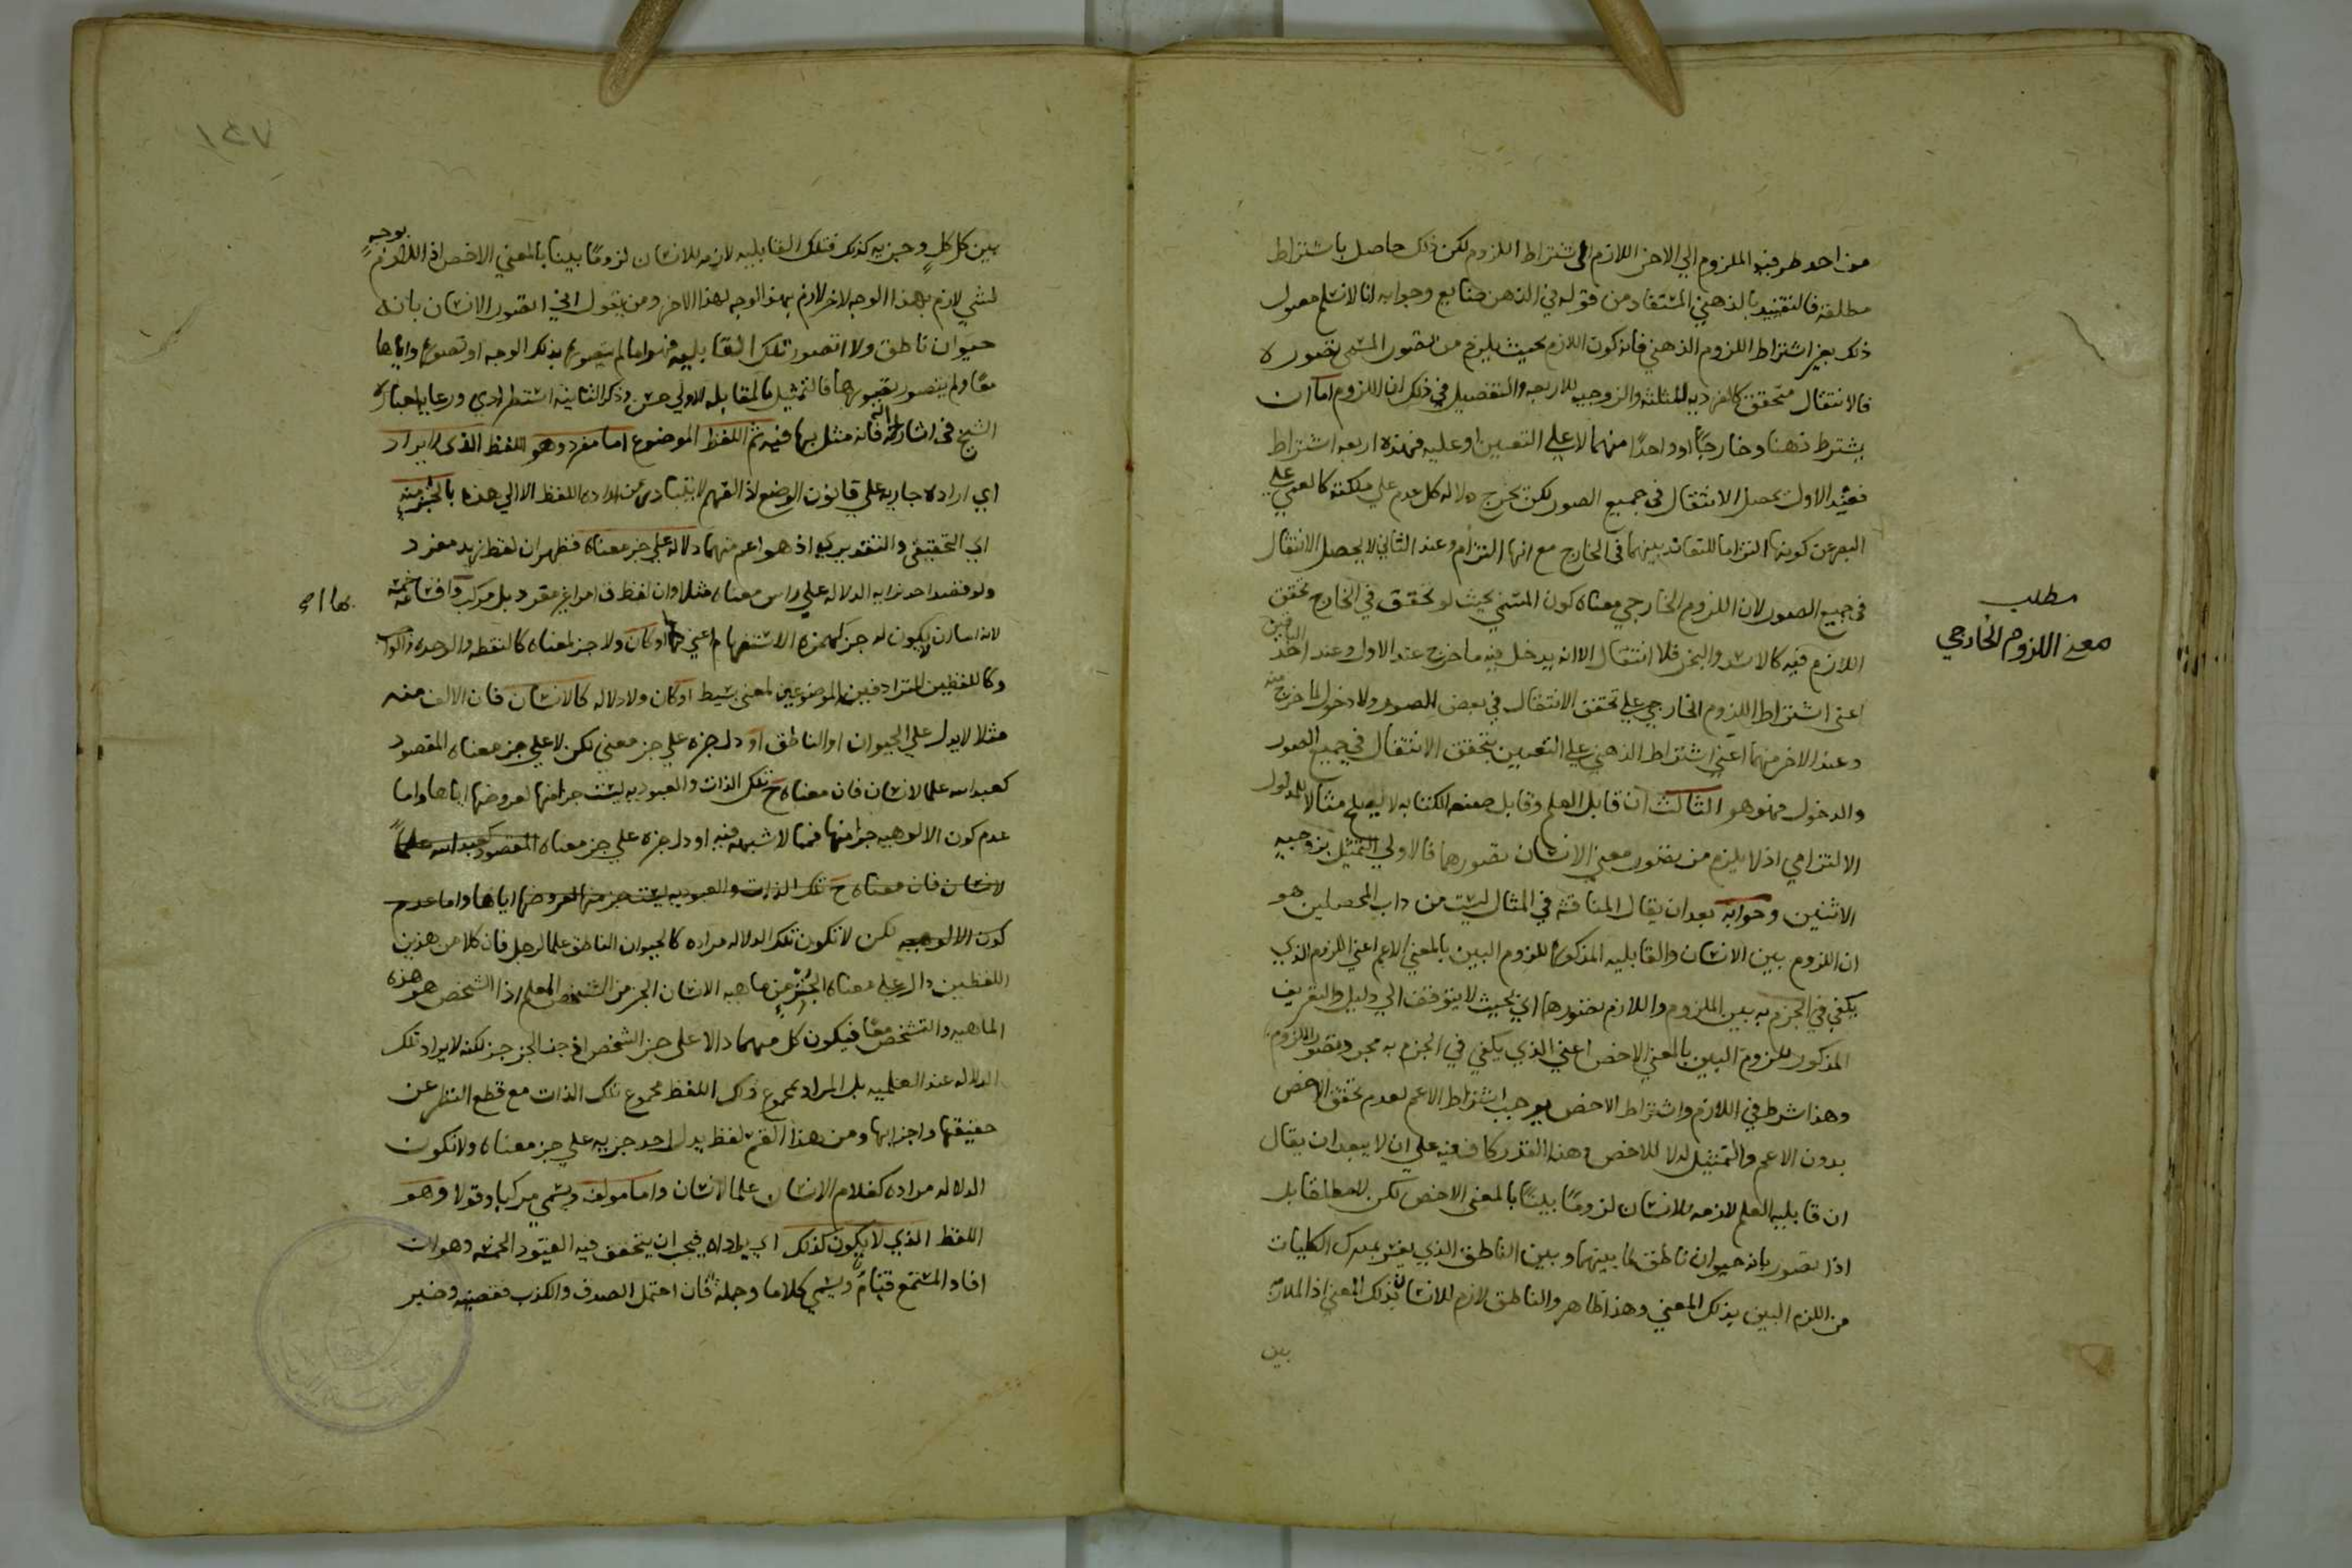 من احد طرفيه الملزوم الي الاخر اللازم الى شتراط اللزوم لكن ذلك حاصل باشتراط
مطلقه فالتقييد بالذهني المستفاد من قوله في الذهن ضايع وجوابه انا لانسلم حصول
ذلك بغير اشتراط اللزوم الذهني فانه كون اللازم بحيث يلزم من تصور المسمى تصوره
فالانتقال متحقق كالفرديه للثلثه والزوجيه للاربعه والتفصيل في ذلك ان اللزوم اما ان
يشترط ذهنا وخارجًا او واحدًا منهما لا علي التعيين او عليه فهذه اربعه اشتراط
فعند الاول يحصل الانتقال في جميع الصور لكن يخرج دلاله كل عدم علي ملكته كالعمي علي
البصر عن كونها التزاما للتعاند بينهما في الخارج مع انها التزام وعند الثاني لا يحصل الانتقال
في جميع الصور لان اللزوم الخارجي معناه كون المسمي بحيث لو تحقق في الخارج تحقق
اللازم فيه كالاسد والبخر فلا انتقال الا انه يدخل فيه ما خرج عند الاول وعند احد الباقيين
اعني اشتراط اللزوم الخارجي علي تحقق الانتقال في بعض الصور ولا دخول لما خرج منه
وعند الاخر منهما اعني اشتراط الذهني علي التعيين يتحقق الانتقال في جميع الصور
والدخول فهو هو الثالث ان قابل العلم وقابل صنعه الكتابه لا يصلح مثالا للمدلول
الالتزامي اذ لا يلزم من تصور معني الانسان تصورهما فالاولي التمثيل بزوجيه
الاثنين وجوابه بعد ان يقال المناقشه في المثال ليست من داب المحصلين هو
ان اللزوم بين الانسان والقابليه المذكوره اللزوم البين بالمعني الاعم اعني اللزم الذي
يكفي في الجزم به بين الملزوم واللازم تصورهما اي بحيث لا يتوقف الي دليل والتعريف
المذكور للزوم البين بالمعني الاخص اعني الذي يكفي في الجزم به مجرد تصور الملزوم
وهذا شرط في اللازم واشتراط الاخص يوجب اشتراط الاعم لعدم تحقق الاخص
بدون الاعم والتمثيل له لا للاخص وهذا القدر كاف فيه علي ان لا يبعد ان يقال
ان قابليه العلم لازمه للانسان لزومًا بينًا بالمعني الاخص لكن لا مطلقا بل
اذا تصور بانه حيوان ناطق لما بينهما وبين الناطق الذي يفسر بمدرك الكليات
من اللزم البين بذلك المعني وهذا ظاهر والناطق لازم للانسان بذلك المعني اذ الملازمه
بين
مطلب
معني اللزوم الخارجي
١٤٧
بين كل كلٍ وجزيه كذلك فتلك القابليه لازمه للانسان لزومًا بينا بالمعني الاخص اذ اللازم بوجهٍ
لشي لازم بهذا الوجه لاخر لازم بهذا الوجه لهذا الاخر ومن يقول اني اتصور الانسان بانه
حيوان ناطق ولا اتصور تلك القابليه فهو اما لم يتصور بذلك الوجه او تصور واياها
معًا ولم يتصور تصورها فالتمثيل بالمقابله الاولي حسن وذكر الثانيه استطرادي ورعايه لعباره
الشيخ في اشاراته فانه مثل بها فيه ثم اللفظ الموضوع اما مفرد وهو اللفظ الذي لا يراد
اي اراده جاريه علي قانون الوضع اذ الفهم لا يتبادر من اراده اللفظ الا الي هذه بالجزء منه
اي التحقيقي والتقديري اذ هو اعم منهما دلاله علي جز معناه فظهر ان لفظ زيد مفرد
ولو قصد احد بزايه الدلاله علي راس معناه مثلا وان لفظ ق امرا غير مفرد بل مركب واقسامه خمسه
لانه اما ان لا يكون له جز كهمزه الاستفهام اعني ها او كان ولا جز لمعناه كالنقطه والوحده
وكاللفظين المترادفين الموضوعين لمعني بسيط او كان ولا دلاله كالانسان فان الالف منه
مثلا لا يدل علي الحيوان او الناطق او دل جزه علي جز معني لكن لا علي جز معناه المقصود
كعبد الله علما لانسان فان معناه ح تلك الذات والعبوديه ليست جزا منها لعروضها اياها واما
عدم كون الالوهيه جزا منها فمما لا شبهه فيه او دل جزه علي جز معناه المقصود كعبد الله علماً
لانسان فان معناه ح تلك الذات والعبوديه ليست جز منها لعروضها اياها واما عدم
كون الالوهيه لكن لا تكون تلك الدلاله مراده كالحيوان الناطق علما لرجل فان كلا من هذين
اللفظين دال علي معناه الجزء من ماهيه الانسان الجز من الشخص المعلم اذ الشخص هو هذه
الماهيه والتشخص معًا فيكون كل منهما دالا علي جز الشخص اذ جز الجز جز لكنه لا يراد تلك
الدلاله عند العلميه بل المراد بمجموع ذلك اللفظ مجموع تلك الذات مع قطع النظر عن
حقيقتها واجزايها ومن هذا القسم لفظ يدل احد جزيه علي جز معناه ولا تكون
الدلاله مراده كغلام الانسان علما لانسان واما مولف ويسمي مركبا وقولا وهو
اللفظ الذي لا يكون كذلك اي يراد اه فيجب ان يتحقق فيه القيود الخمسه وهو ان
افاد المستمع فتامٌ ويسمي كلاما وجمله فان احتمل الصدق والكذب فقضيه وخبر